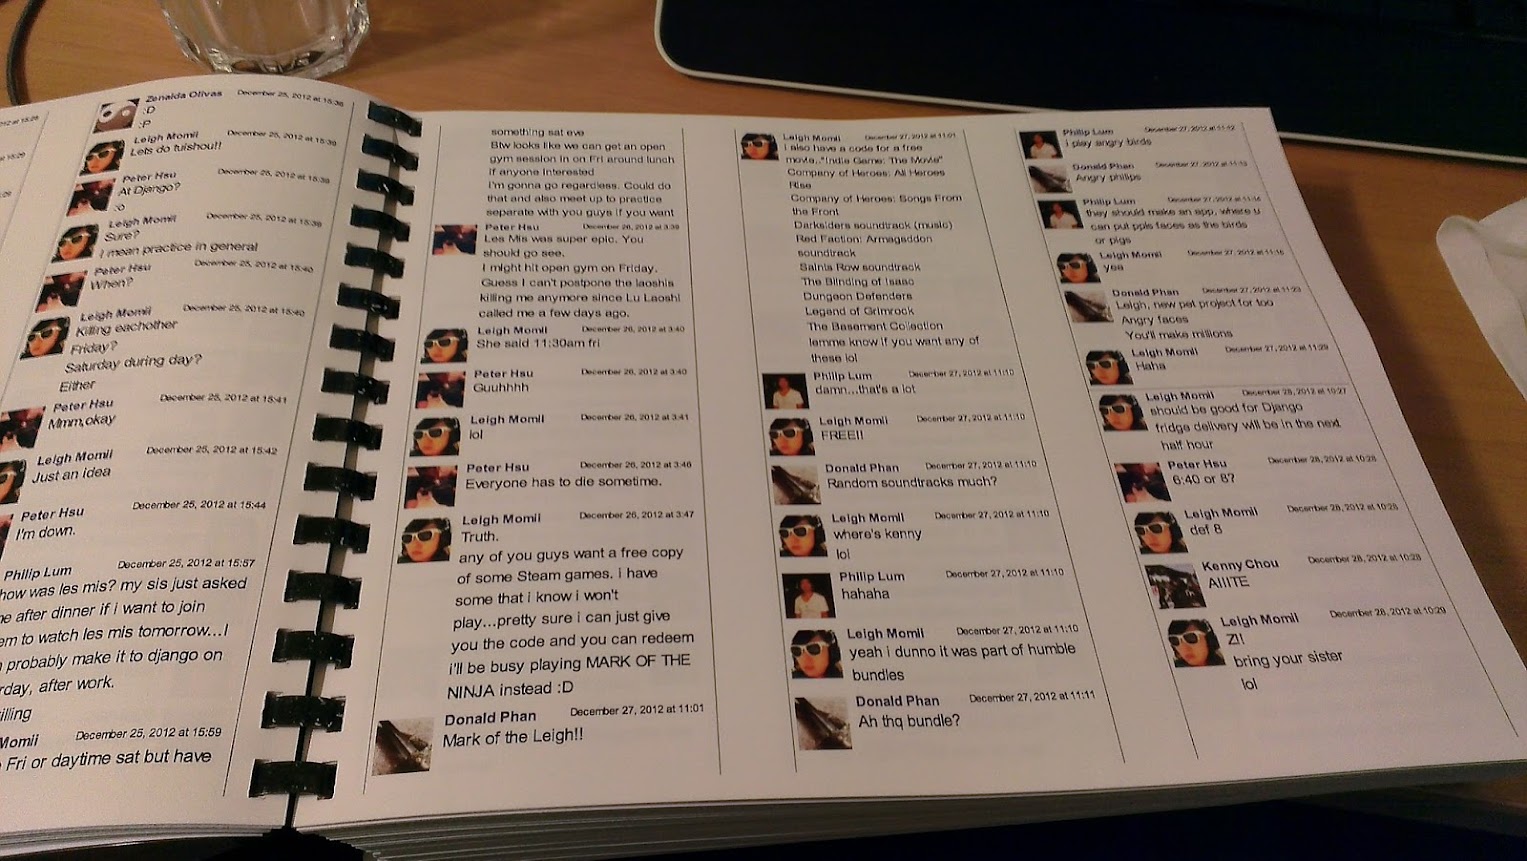 Zenaida Olivas December 25, 2012 at 15:38
:D
:P
Leigh Momii December 25, 2012 at 15:39
Lets do tuishou!!
Peter Hsu December 25, 2012 at 15:39
At Django?
:o
Leigh Momii December 25, 2012 at 15:39
Sure?
I mean practice in general
Peter Hsu December 25, 2012 at 15:40
When?
Leigh Momii December 25, 2012 at 15:40
Killing eachother
Friday?
Saturday during day?
Either
Peter Hsu December 25, 2012 at 15:41
Mmm,okay
Leigh Momii December 25, 2012 at 15:42
Just an idea
Peter Hsu December 25, 2012 at 15:44
I'm down.
Philip Lum December 25, 2012 at 15:57
how was les mis? my sis just asked
after dinner if i want to join
to watch les mis tomorrow...I
probably make it to django on
after work.
Momii December 25, 2012 at 15:59
Fri or daytime sat but have
something sat eve
Btw looks like we can get an open
gym session in on Fri around lunch
if anyone interested
i'm gonna go regardless. Could do
that and also meet up to practice
separate with you guys if you want
Peter Hsu December 26, 2012 at 3:39
Les Mis was super epic. You
should go see.
I might hit open gym on Friday.
Guess I can't postpone the laoshis
killing me anymore since Lu Laoshi
called me a few days ago.
Leigh Momii December 26, 2012 at 3:40
She said 11:30am fri
Peter Hsu December 26, 2012 at 3:40
Guuhhhh
Leigh Momii December 26, 2012 at 3:41
lol
Peter Hsu December 26, 2012 at 3:46
Everyone has to die sometime.
Leigh Momii December 26, 2012 at 3:47
Truth.
any of you guys want a free copy
of some Steam games. i have
some that i know i won't
play...pretty sure i can just give
you the code and you can redeem
i'll be busy playing MARK OF THE
NINJA instead :D
Donald Phan December 27, 2012 at 11:01
Mark of the Leigh!!
Leigh Momii December 27, 2012 at 11:01
i also have a code for a free
movie.."Indie Game: The Movie"
Company of Heroes: All Heroes
Rise
Company of Heroes: Songs From
the Front
Darksiders soundtrack (music)
Red Faction: Armageddon
soundtrack
Saints Row soundtrack
The Binding of Isaac
Dungeon Defenders
Legend of Grimrock
The Basement Collection
lemme know if you want any of
these lol
Philip Lum December 27, 2012 at 11:10
damn...that's a lot
Leigh Momii December 27, 2012 at 11:10
FREE!!
Donald Phan December 27, 2012 at 11:10
Random soundtracks much?
Leigh Momii December 27, 2012 at 11:10
where's kenny
lol
Philip Lum December 27, 2012 at 11:10
hahaha
Leigh Momii December 27, 2012 at 11:10
yeah i dunno it was part of humble
bundles
Donald Phan December 27, 2012 at 11:11
Ah thq bundle?
Philip Lum December 27, 2012 at 11:12
i play angry birds
Donald Phan December 27, 2012 at 11:13
Angry philips
Philip Lum December 27, 2012 at
they should make an app, where u
can put ppls faces as the birds
or pigs
Leigh Momii December 27, 2012 at
yea
Donald Phan December 27, 2012 at 11:23
Leigh, new pet project for too
Angry faces
You'll make millions
Leigh Momii December 27, 2012 at 11:29
Haha
Leigh Momii December 28, 2012 at 10:27
should be good for Django
fridge delivery will be in the next
half hour
Peter Hsu December 28, 2012 at 10:28
6:40 or 8?
Leigh Momii December 28, 2012 at 10:28
def 8
Kenny Chou December 28, 2012 at 10:28
AIIITE
Leigh Momii December 28, 2012 at 10:29
Z!!
bring your sister
lol